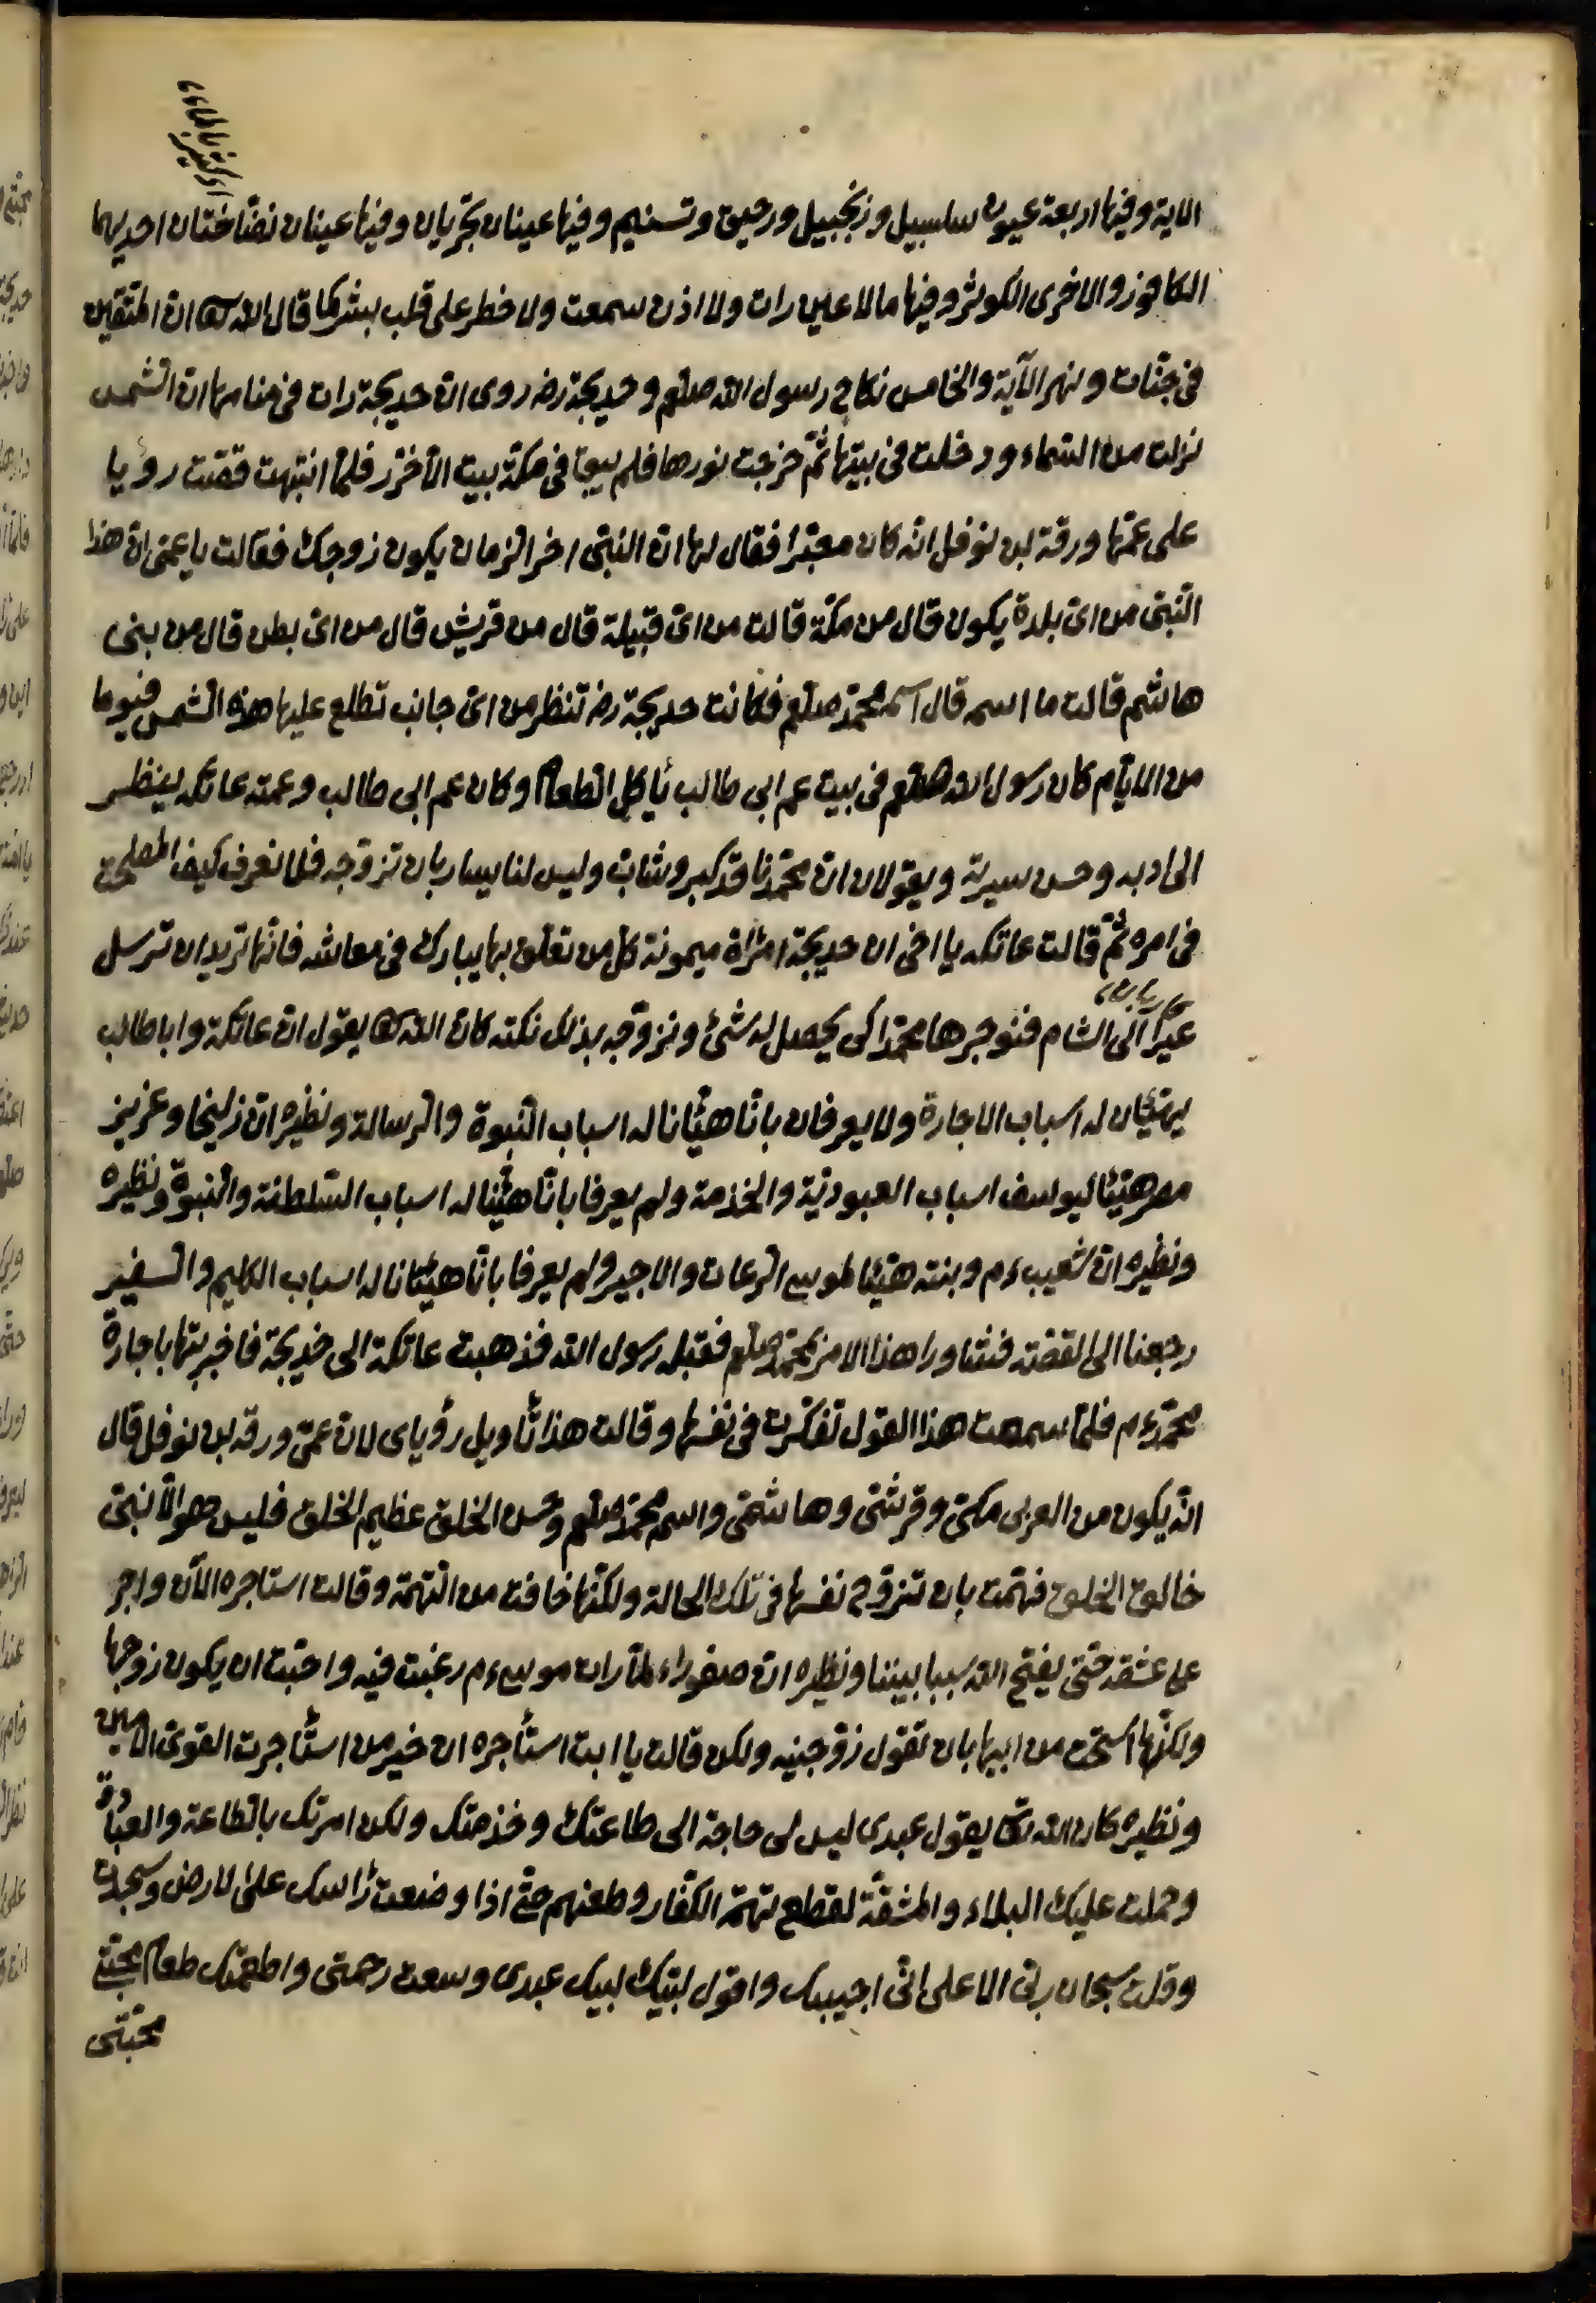 الاية وفيها اربعة عيون سلسبيل وزنجبيل ورحيق وتسنيم وفيها عينان تجريان وفيها عينان نضّاختان احديهما
الكافور والاخرى الكوثر وفيها ما لا عين رات ولا اذن سمعت ولا خطر على قلب بشر كما قال الله تعا ان المتقين
فى جنّات ونهر الآية والخامس نكاح رسول الله صلعم وخديجة رضـ روى ان خديجة رات فى منامها ان الشمس
نزلت من السّماء ودخلت فى بيتها ثمّ خرجت نورها فلم يبق فى مكّة بيت الاخرر فلمّا انتبهت قصّت رؤيا
على عمّها ورقة بن نوفل انّه كان معبّرا فقال لها ان النبىّ اخر الزمان يكون زوجك فقالت يا عمى ان هذا
النّبىّ من اىّ بلدة يكون قال من مكّة قالت من اىّ قبيلة قال من قريش قال من اىّ بطن قال من بنى
هاشم قالت ما اسمه قال اسمه محمّد صلعم فكانت خديجة رضـ تنظر من اىّ جانب تطلع عليها هذه الشّمس فيوما
من الايّام كان رسول الله صلعم فى بيت عم ابى طالب يأكل الطعام وكان عم ابى طالب وعمته عاتكه ينظر
الى ادبه وحسن سيرته ويقولان ان محمّدنا قد كبر وشابّ وليس لنا يسار بان تزوّجه فلا نعرف كيف المصلحت
فى امره ثمّ قالت عاتكه يا اخى ان خديجة امرأة ميمونة كل من تعلق بها يبارك فى معاشه فانّها تريد ان ترسل
عيرًا الى الشام فنوجرها محمّدا كى يحصل له شئ ونزوّجه بذلك نكته كان الله تعا يقول ان عاتكة وابا طالب
يهيّئان له اسباب الاجارة ولا يعرفان بانّا هيّأنا له اسباب النّبوة والرّسالة ونظيره ان زليخا وعزيز
مصر هيّئا ليوسف اسباب العبوديّة والخدمة ولم يعرفا بانّا هيّئنا له اسباب السّلطنة والنّبوّة ونظيره
ونظيره ان شعيب ءم وبنته هيّئا لموسى الرعات والاجير ولم يعرفا بانّا هيّئانا له اسباب الكليم والسفير
رجعنا الى القصّة فتشاورا هذا الامر بمحمّد صلعم فقبله رسول الله فذهبت عاتكة الى خديجة فاخبرتها باجارة
محمّد ءم فلمّا سمعت هذا القول تفكّرت فى نفسها وقالت هذا تأويل رؤياى لان عمّى ورقه بن نوفل قال
انّه يكون من العربى مكىّ وقرشىّ وهاشمىّ واسمه محمّد صلعم وحسن الخلق عظيم الخلق فليس هو الاّ نبىّ
خالق الخلق فهمّت بان تزوّج نفسها فى تلك الحالة ولكنّها خافت من التّهمة وقالت استاجره الآن واجر
على عشقه حتّى يفتح الله سببا بيننا ونظيره ان صفوراء لمّا رات موسى ءم رغبت فيه واحبّت ان يكون زوجها
ولكنّها استحت من ابيها بان تقول زوّجنيه ولكن قالت يا ابت استأجره ان خير من استأجرت القوىّ الامين
ونظيره كان الله تعا يقول عبدى ليس لى حاجة الى طاعتك وخدمتك ولكن امرتك بالطاعة والعبادة
وحملت عليك البلاء والمشقّة لقطع تهمة الكفّار وطعنهم حتّى اذا وضعت رأسك على الارض وسجدت
وقلت سبحان ربّى الاعلى انّى اجيبك واقول لبّيك لبيك عبدى وسعت رحمتى واطعمتك طعام محبّتى
محبّتى